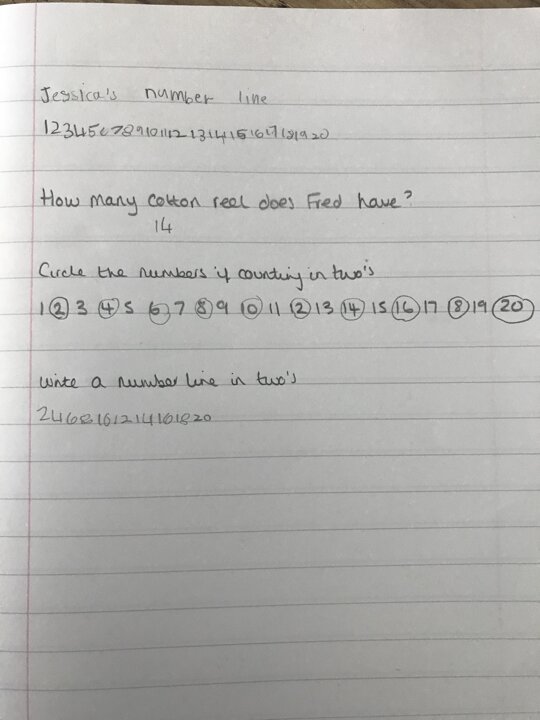 Jessica's number line
1234567891011121314151617181920
How many cotton reel does Fred have?
14
Circle the numbers if counting in two's
1 2 3 4 5 6 7 8 9 10 11 12 13 14 15 16 17 18 19 20
Write a number line in two's
2468161214161820